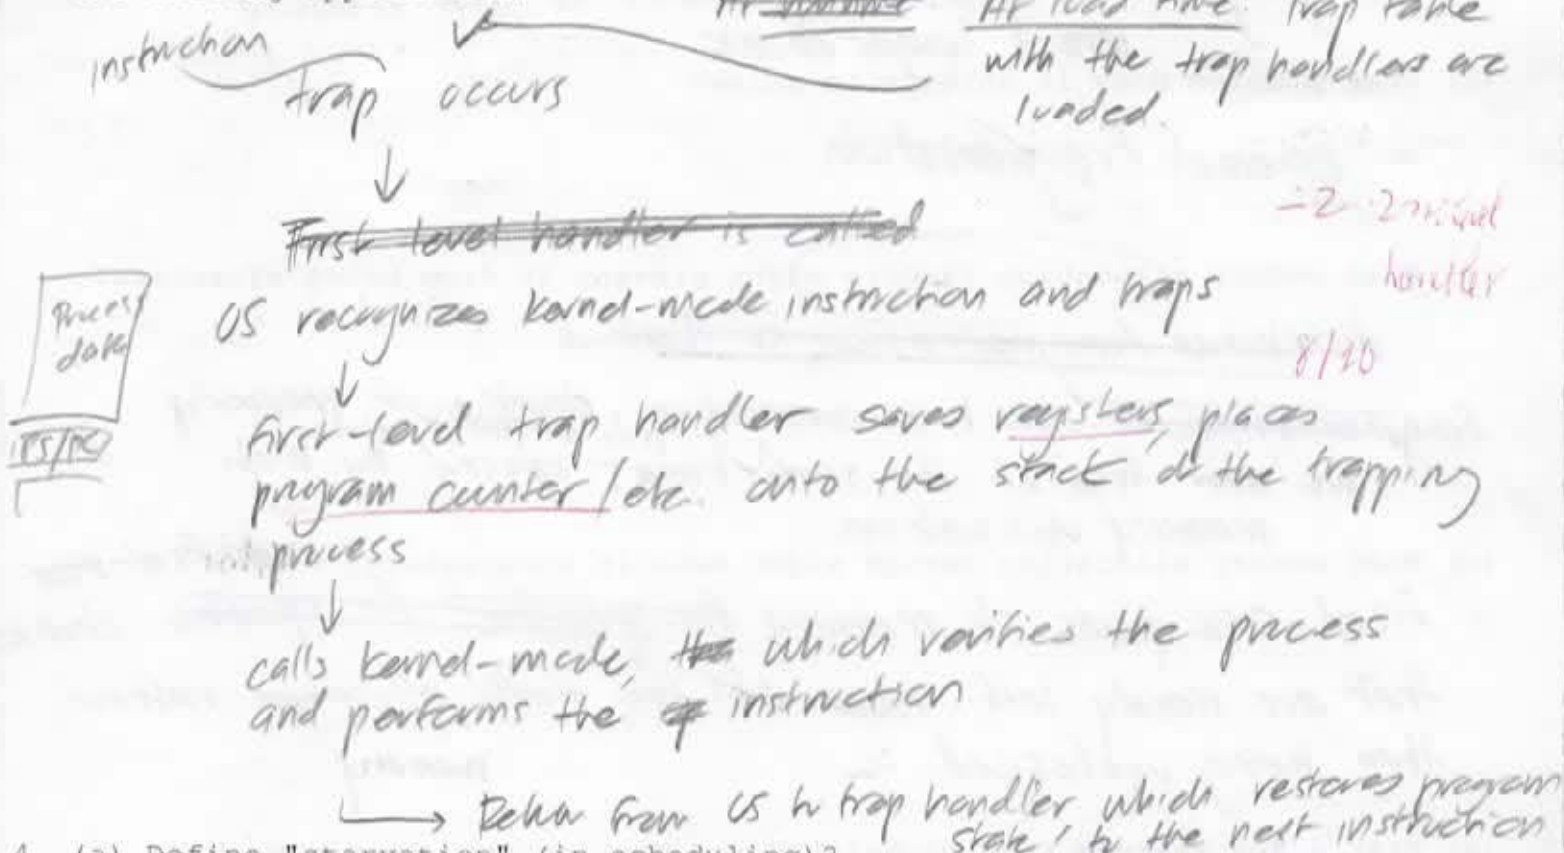 instruction
trap occurs
At load time: trap table
with the trap handlers are
loaded.
First level handler is called
-2 2nd level
handler
Process
data
OS recognizes kernel-mode instruction and traps
8/10
PS/PC
first-level trap handler saves registers, places
program counter/etc. onto the stack of the trapping
process
calls kernel-mode, which verifies the process
and performs the instruction
Return from OS to trap handler which restores program
state, to the next instruction
4. (a) Define "starvation" (in scheduling)?